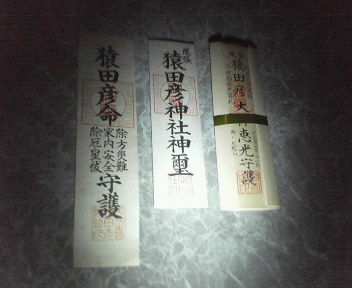 猿田彦命
除方災難
家内安全
除厄皇祓
守護
尾張
猿田彦神社神璽
猿田彦大
恵光守護